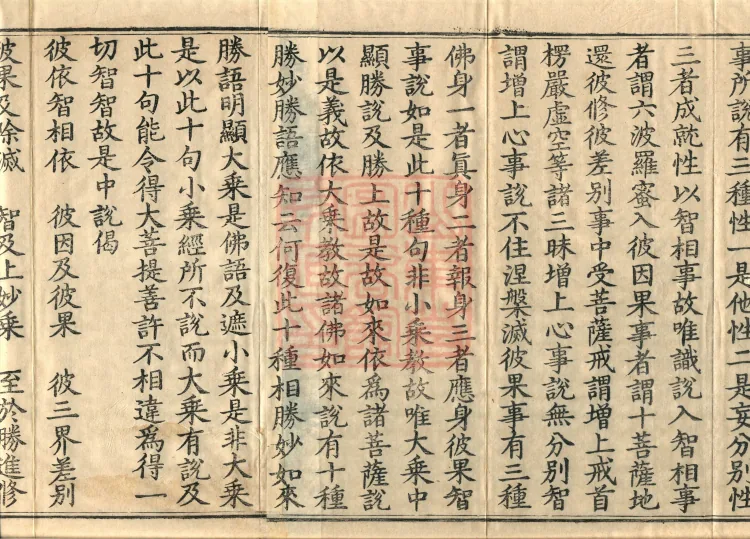 事所說有三種性一是他性二是妄分別性
三者成就性以智相事故唯識說入智相事
者謂六波羅蜜入彼因果事者謂十菩薩地
還彼修彼差別事中受菩薩戒謂增上戒首
楞嚴虛空等諸三昧增上心事說無分別智
謂增上心事說不住涅槃滅彼果事有三種
佛身一者真身二者報身三者應身彼果智
事說如是此十種句非小乘教故唯大乘中
顯勝說及勝上故是故如來依為諸菩薩說
以是義故依大乘教故諸佛如來說有十種
勝妙勝語應知云何復此十種相勝妙如來
勝語明顯大乘是佛語及遮小乘是非大乘
是以此十句小乘經所不說而大乘有說及
此十句能令得大菩提善許不相違為得一
切智智故是中說偈
彼依智相依　彼因及彼果　彼三界差別
彼果及除滅　智及上妙乘　至於勝進修